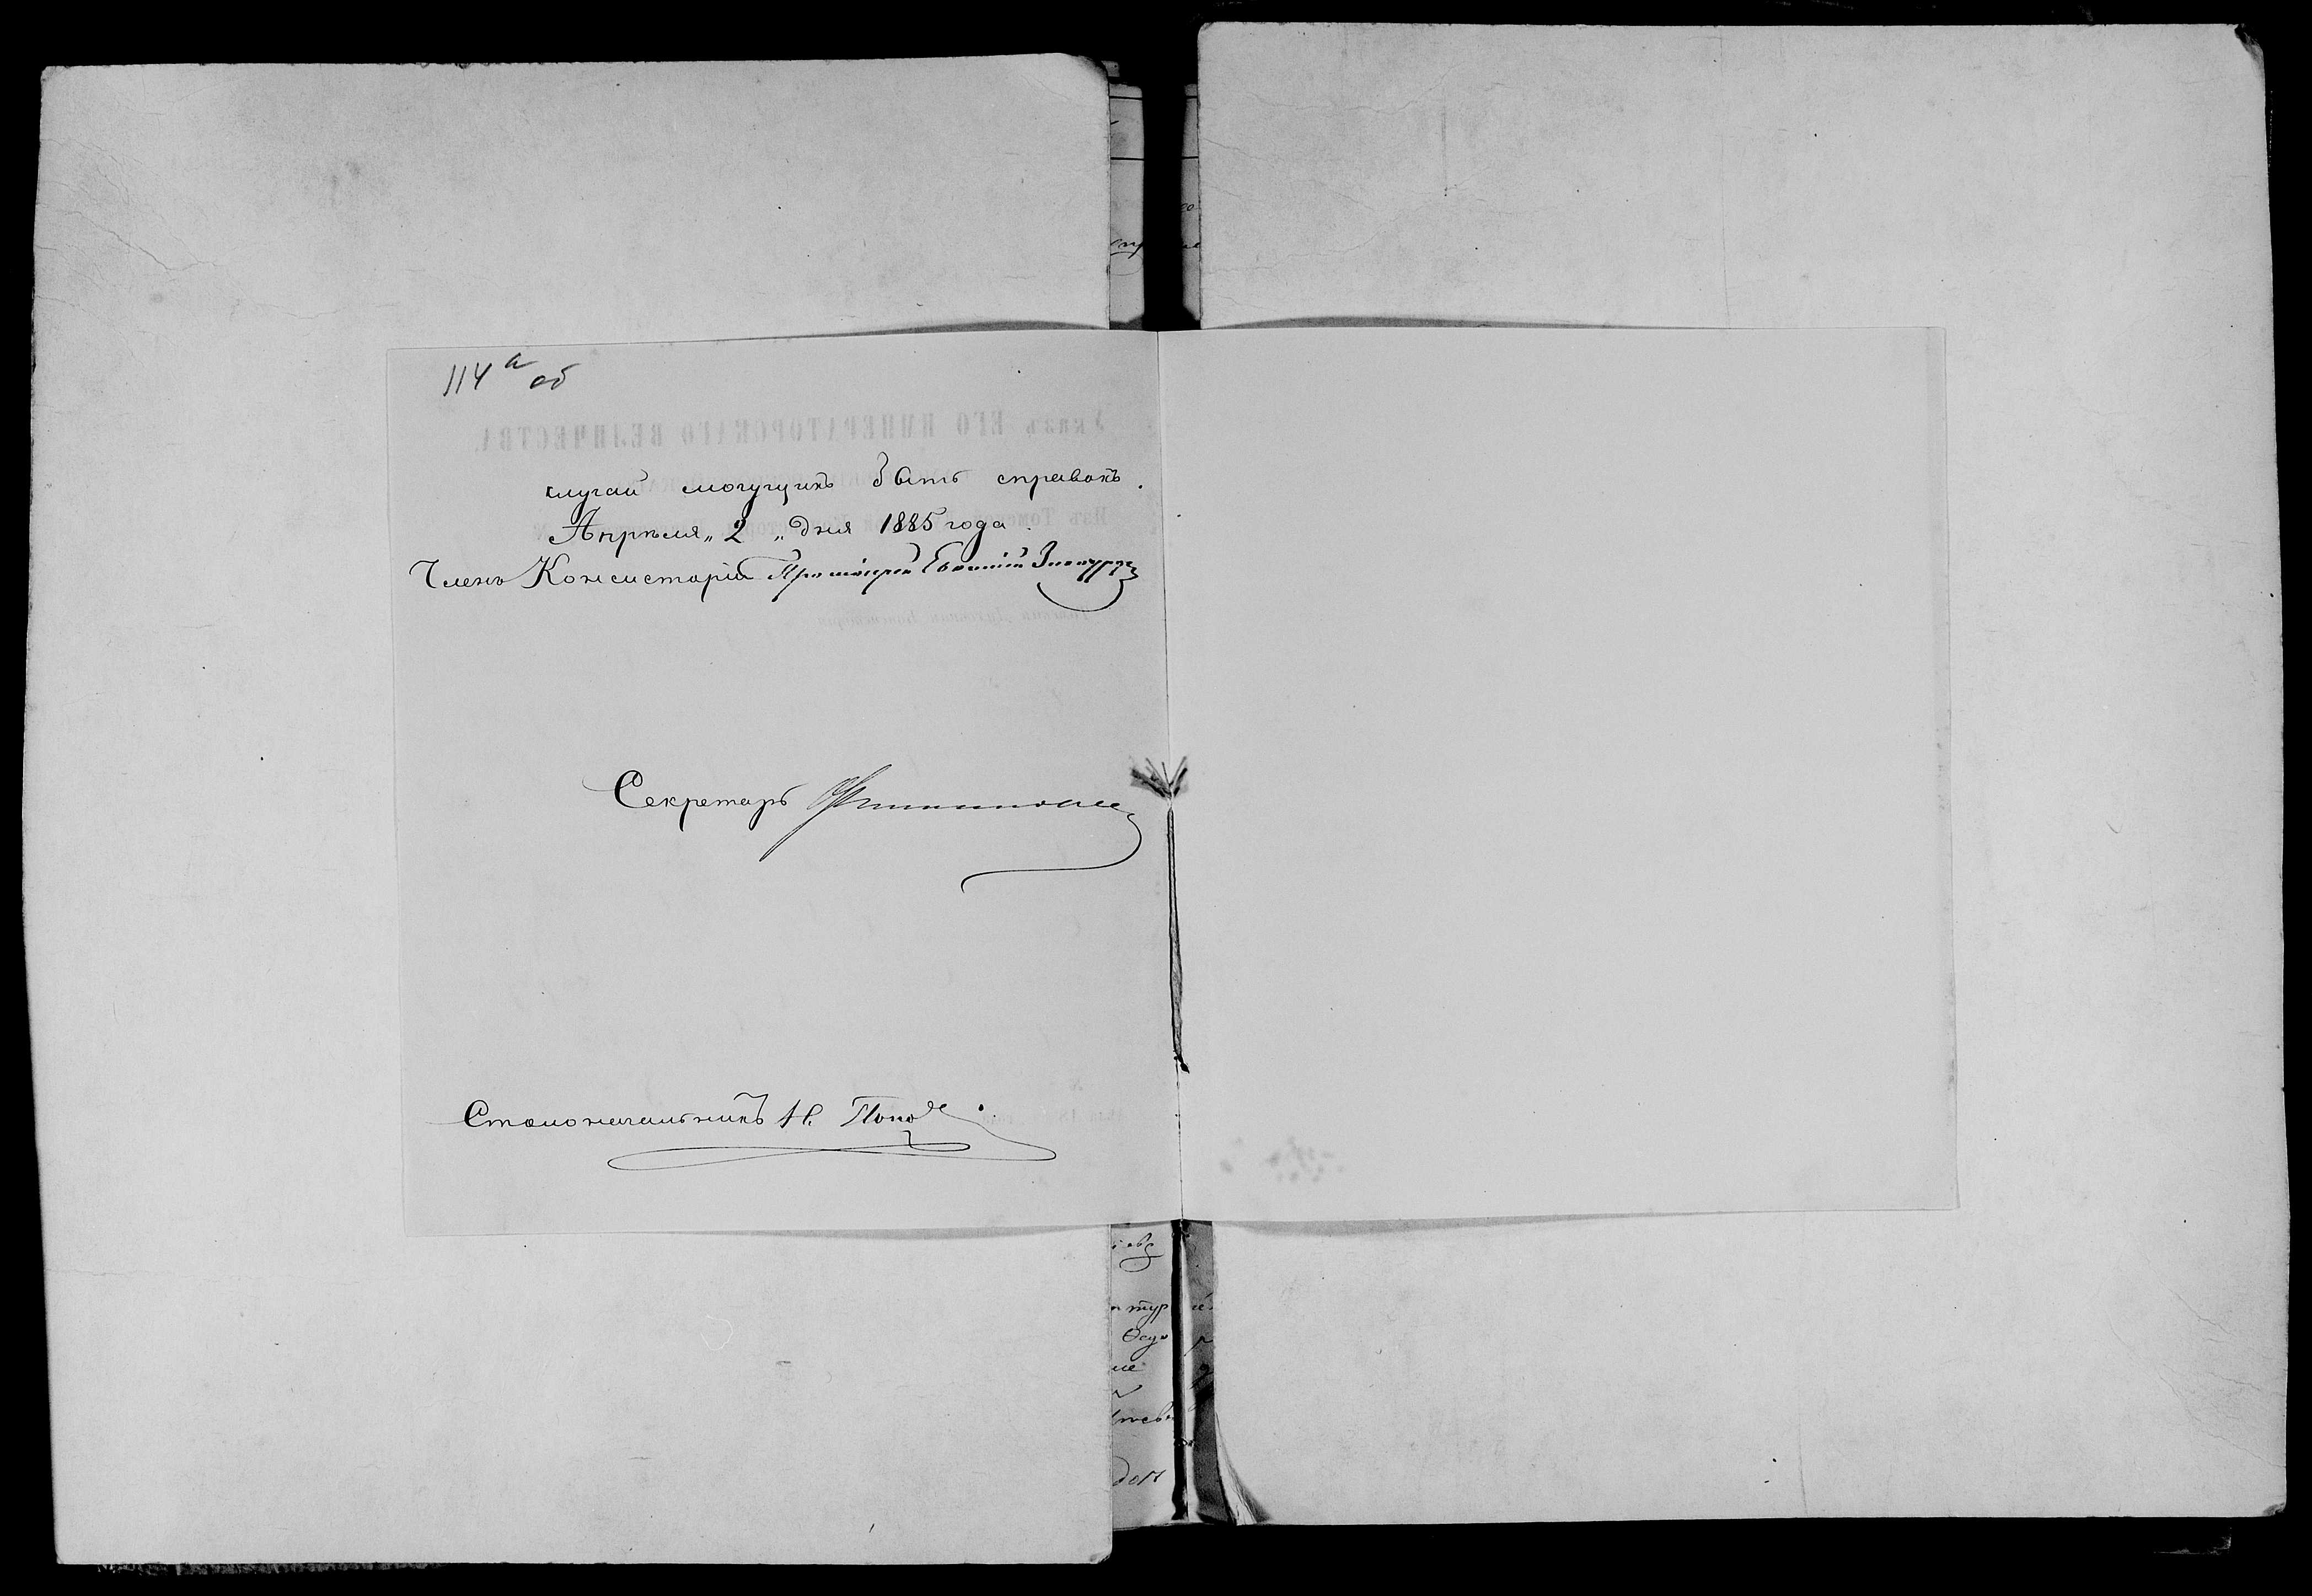 114 а об
случай могущихъ быть справокъ.
Апрѣля „ 2 „ дня 1885 года.
Членъ Консисторіи Протоіерей Евѳимій
Секретарь
Столоначальникъ Н. Попов